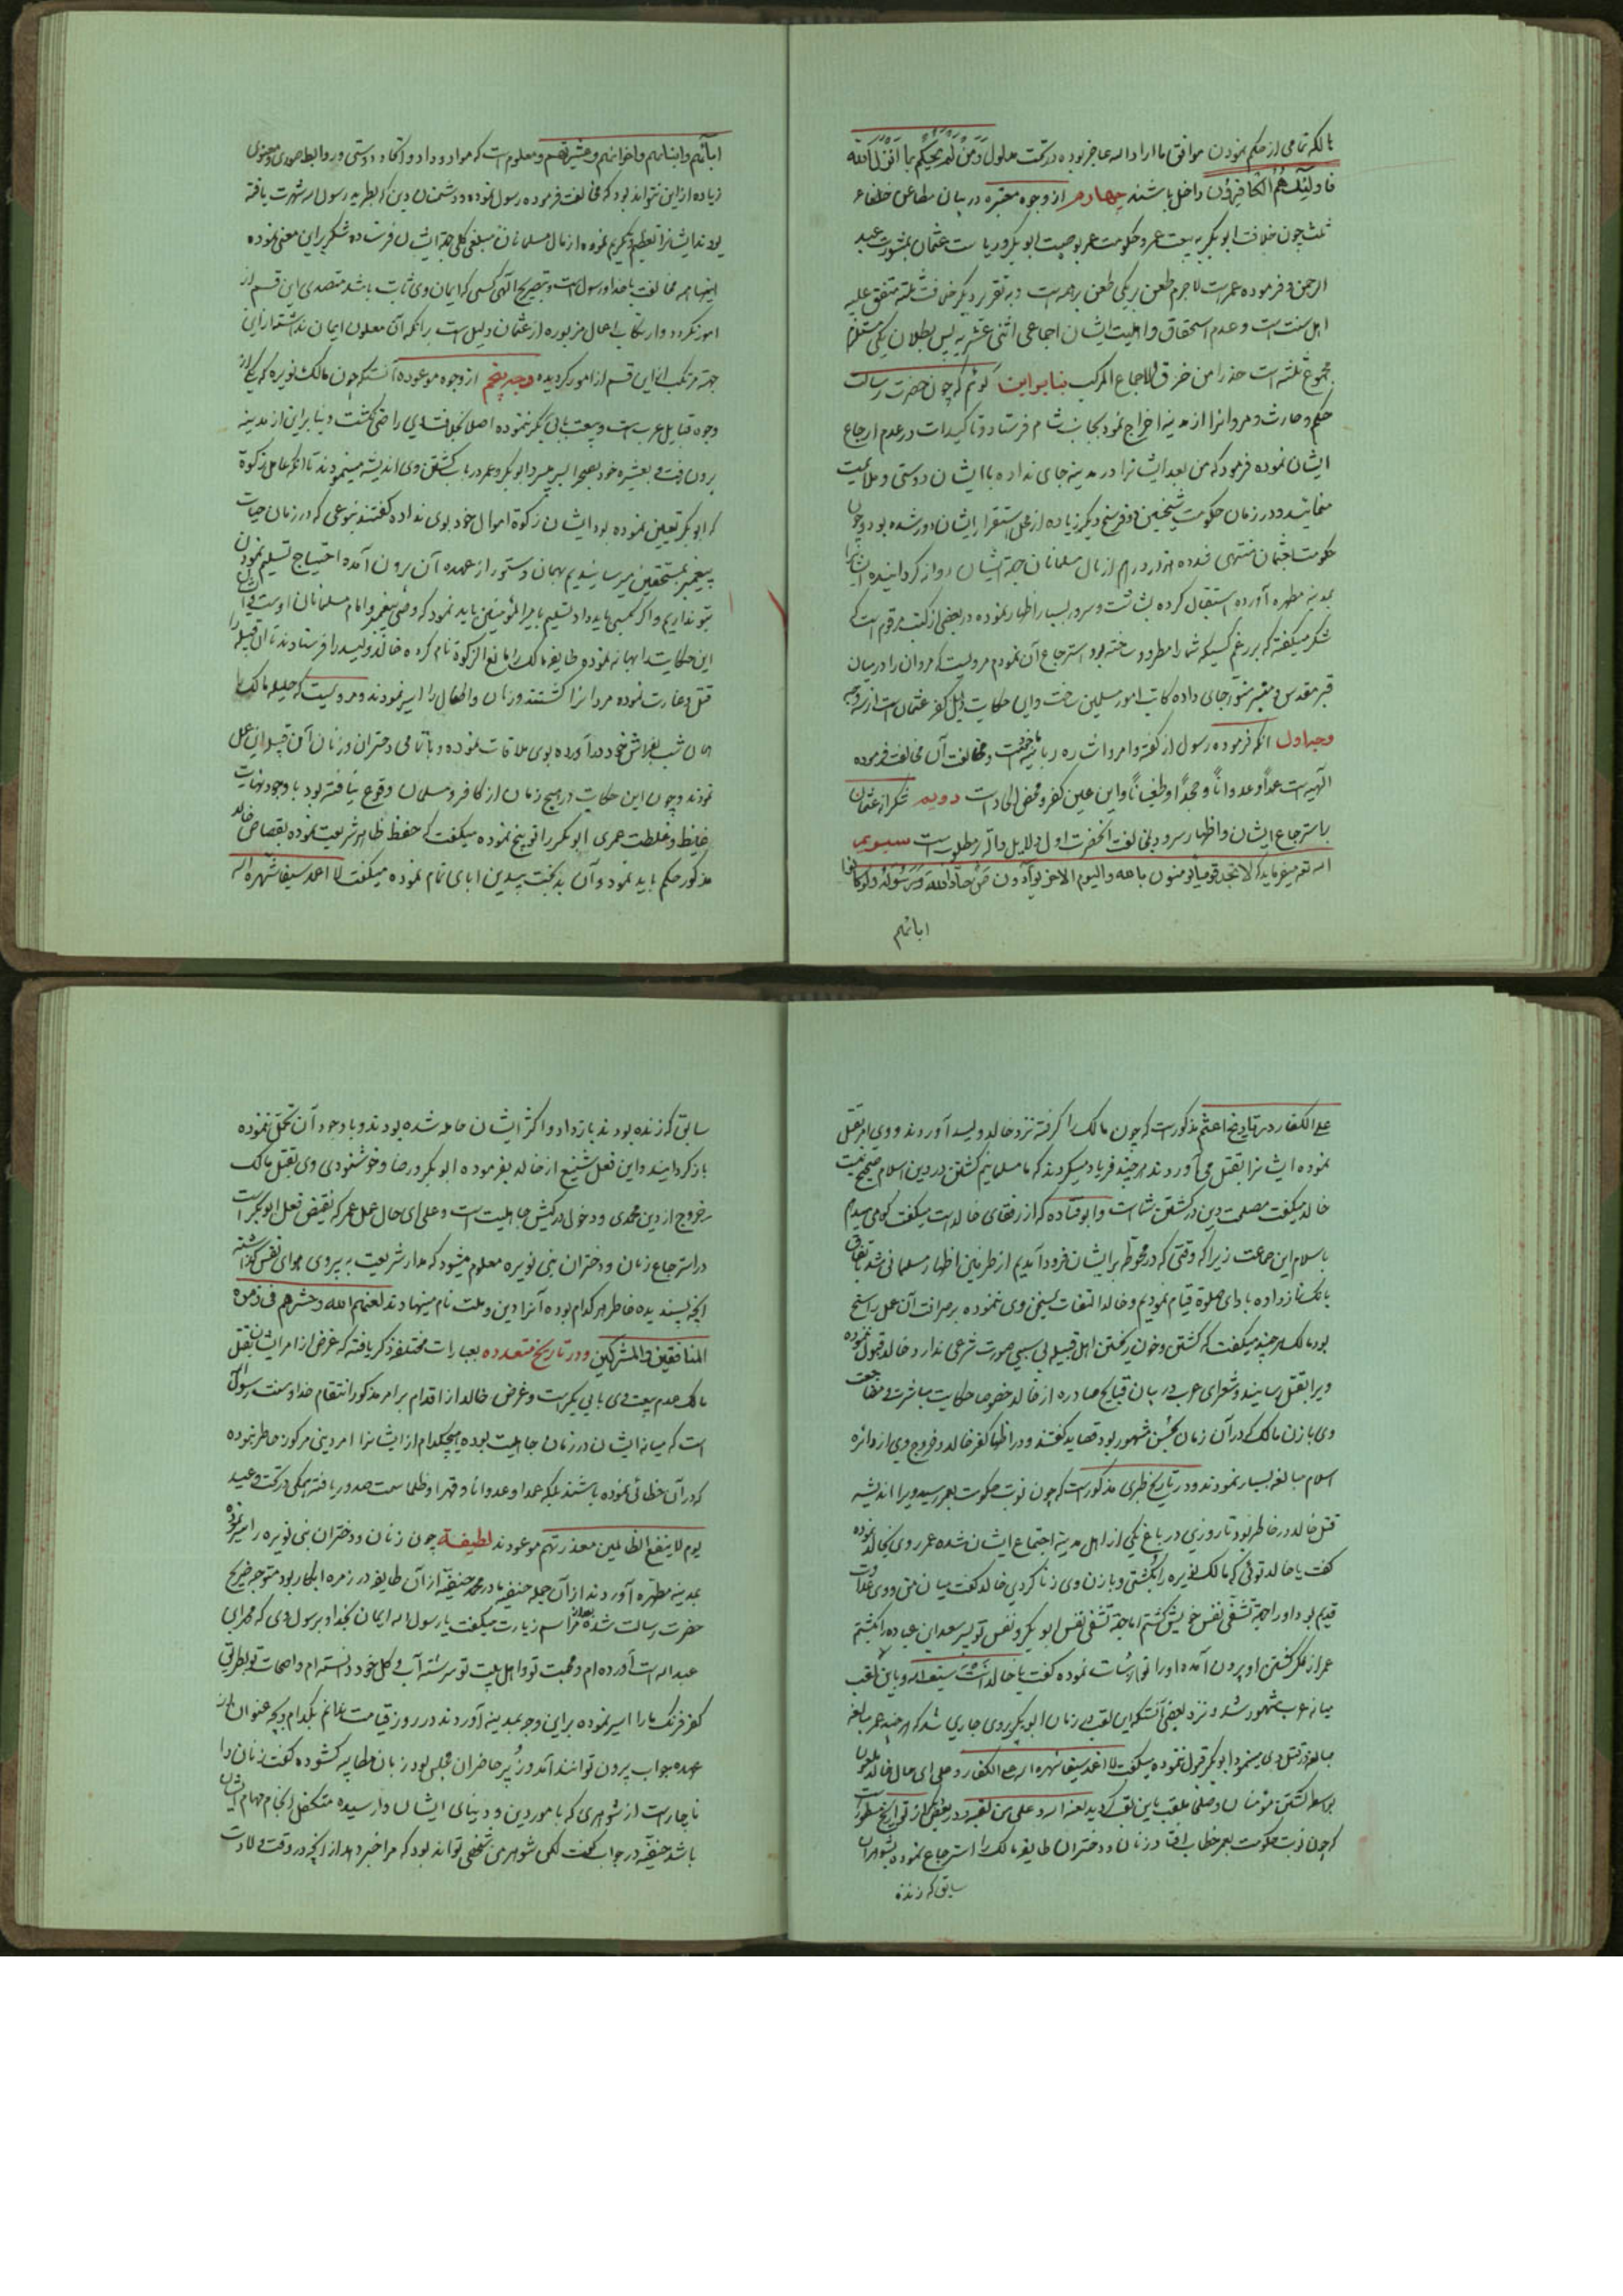 بالکه تمامی از حکم نمودن موافق ما اراد الله عاجز بوده در تحت مدلول وَمَن لَم یَحکُم بِما اَنزَلَ اللّه
فاولئک هُمُ الکافِرُون داخل باشند چهارم از وجوه معتبره در بیان مطاعن خلفاء
ثلث چون خلافت ابو بکر به بیعت عمر و حکومت عمر بوصیت ابو بکر و ریاست عثمان بمشورت عبد
الرحمن و فرموده عمر است لاجرم طعن بر یکی طعن بر همه است و به تقریر دیگر خلافت ثلثه متفق علیه
اهل سنت است و عدم استحقاق و اهلیت ایشان اجماعی اثنی عشریه پس بطلان یکی مستلزم
مجموع ثلثه است حذرا من خرق الاجماع المرکب بنا بر این گوئیم که چون حضرت رسالت
حکم و حارث و مروانرا از مدینه اخراج نمود بجانب شام فرستاد و تاکیدات در عدم ارجاع
ایشان نموده فرمود که من بعد ایشانرا در مدینه جای نداده با ایشان دوستی و ملایمت
منمائید و در زمان حکومت شیخین دو فرسنخ دیگر زیاده از محل استقرار ایشان دور شده بود و چون
حکومت بعثمان منتهی شد ده هزار درم از مال مسلمانان جهة ایشان روانه گردانیده ایشانرا
بمدینه مطهره آورده استقبال کرده بشاشت و سرور بسیار اظهار نموده در بعضی از کتب مرقوم است که
شکر میگفته که بر رغم کسیکه شما را مطرود ساخته بود استرجاع آن نمودم مرویست که مروان را در میان
قبر مقدس و منبر منور جای داده کاتب امور مسلمین ساخت و این حکایت دلیل کفر عثمان است از سه وجه
وجه اول انکه فرموده رسول از گفته و امر و اشاره ربانیه است و مخالفت آن مخالفت فرموده
الهیه است عمداً و عدواناً و جحداً و طغیاناً و این عین کفر و محض الحاد است دویم شکر از عثمان
باسترجاع ایشان و اظهار سرور بمخالفت آنحضرت اول دلایل دالّه بر مطلوبست سیویم
الله تعه میفرماید که لا تجد قوما یؤمنون بالله و الیوم الاخر یوآدّون مَن حآدّ اللّه وَرَسُولَه وَلَو کانوا
ابائهم
ابآئهم وابنائهم واخوانهم وعشیرتهم و معلوم است که مواد و وداد و اتحاد و دوستی و روابط صوری و معنوی
زیاده از این نتواند بود که مخالفت فرموده رسول نموده و دشمنان دین که بطرید رسول الله شهرت یافته
بودند ایشانرا تعظیم و تکریم نموده از مال مسلمانان مبلغی کلی جهة ایشان فرستاده شکر بر این معنی نموده
اینها همه مخالفت با خدا و رسول است و بتصریح آلهی کسی که ایمان وی ثابت باشد متصدی این قسم از
امور نگردد و ارتکاب اعمال مزبوره از عثمان دلیل است بر انکه آن معلون ایمان نداشته از این
جهة مرتکب این قسم از امور گردیده وجه پنجم از وجوه موعوده آنستکه چون مالک نویره که یکی از
وجوه قبایل عرب است و بیعت بابی بکر ننموده اصلا بخلافت وی راضی نگشت و بنا بر این از مدینه
برون رفت و بعشیره خود بصحرا بسر میبرد ابو بکر و عمر در باب کشتن وی اندیشه مینمودند تا انکه عامل زکوة
که ابو بکر تعیین نموده بود ایشان زکوة اموال خود بوی نداده گفتند بنوعی که در زمان حیات
پیغمبر بمستحقین میرسانیدیم بهمان دستور از عهده آن برون آمده احتیاج تسلیم نمودن
بتو نداریم و اگر بکسی باید داد تسلیم بامیر المؤمنین باید نمود که وصی پیغمبر و امام مسلمانان اوست
این حکایت را بهانه نموده طایفه مالک را مانع الزکوة نام کرده خالد ولید را فرستادند تا آن قبیله را
قتل و غارت نموده مردانرا کشتند و زنان و اطفال را اسیر نمودند و مرویست که حلیله مالک را
همان شب بفراش خود درآورده بوی ملاقات نموده و با تمامی دختران و زنان آن قبیله این عمل
نمودند و چون این حکایت در هیچ زمان از کافر و مسلمان وقوع نیافته بود با وجود نهایت
غیظ و غلظت عمری ابو بکر را توبیخ نموده میگفت که حفظ ظاهر شریعت نموده بقصاص خالد
مذکور حکم باید نمود و آن بدبخت بیدین ابای تمام نموده میگفت لا اغمد سیفا شهره الله
علی الکفار در تاریخ اعثم مذکور است که چون مالک را گرفته نزد خالد ولید آوردند و وی امر بقتل
نموده ایشانرا بقتل می آوردند هر چند فریاد میکردند که ما مسلمانیم کشتن در دین اسلام صحیح نیست
خالد میگفت مصلحت دین در کشتن شما است و ابو قتاده که از رفقای خالد است میگفت گواهی میدهم
باسلام این جماعت زیرا که وقتی که در محوطه بر ایشان فرود آمدیم از طرفین اظهار مسلمانی شد باتفاق
بانک نماز داده بادای صلوة قیام نمودیم و خالد التفات بسخن وی ننموده بر صرافت آن عمل راسخ
بود مالک هر چند میگفت که کشتن و خون ریختن اهل قبیله بی سببی صورت شرعی ندارد خالد قبول ننموده
ویرا بقتل رسانید و شعرای عرب در بیان قبایح صادره از خالد خصوصا حکایت مباشرت و مضاجعت
وی با زن مالک که در آن زمان بحسن مشهور بود قصاید گفتند و در اظهار کفر خالد و خروج وی از دائره
اسلام مبالغه بسیار نمودند و در تاریخ طبری مذکور است که چون نوبت حکومت بعمر رسید ویرا اندیشه
قتل خالد در خاطر بود تا روزی در باغ یکی از اهل مدینه اجتماع ایشان شده عمر روی بخالد نموده
گفت یا خالد توئی که مالک نویره را بکشتی و با زن وی زنا کردی خالد گفت میان من و وی عداوت
قدیم بود او را جهة تشفّی نفس خویش کشتم اما جهة تشفی نفس ابو بکر و نفس تو پسر سعد ابن عباده را بکشتم
عمر از فکر کشتن او برون آمده او را نوازشات نموده گفت یا خالد انت سیف الله و باین لقب
میانه عرب مشهور شد و نزد بعضی آنستکه این لقب در زمان ابو بکر بر وی جاری شد که هر چند عمر مبالغه
مبالغه در قتل وی مینمود ابو بکر قبول ننموده میگفت لا اغمد سیفا شهره الله علی الکفار و علی ای حال خالد ملعون
بواسطه کشتن مؤمنان و صلحا ملقب باین لقب گردید لعنه الله و علی من لقبه و در بعضی از تواریخ مسطور است
که چون نوبت حکومت بعمر خطاب افتاد زنان و دختران طایفه مالک را استرجاع نموده بشوهران
سابق که زنده
سابق که زنده بودند باز داد و اکثر ایشان حامله شده بودند و با وجود آن تحمّل نموده
باز گردانیدند و این فعل شنیع از خالد بفرموده ابو بکر و رضا و خوشنودی وی بقتل مالک
خروج از دین محمدی و دخول در کیش جاهلیت است و علی ای حال عمل عمر که نقیض فعل ابو بکر است
در استرجاع زنان و دختران بنی نویره معلوم میشود که مدار شریعت به پیروی هوای نفس گذاشته
انچه پسندیده خاطر هر کدام بوده آنرا دین و ملت نام مینهادند لعنهم الله وحشرهم فی زمرة
المنافقین والمشرکین و در تاریخ متعدده بعبارات مختلفه ذکر یافته که غرض از امر ایشان بقتل
مالک عدم بیعت وی بابی بکر است و غرض خالد از اقدام بر امر مذکور انتقام خدا و سنت رسول الله
است که میانه ایشان در زمان جاهلیت بوده هیچکدام از ایشانرا امر دینی مرکوز خاطر نبوده
که در آن خطائی نموده باشند بلکه عمدا و عدوانا و قهرا و ظلما سمت صدور یافته همگی در تحت وعید
یوم لا ینفع الظالمین معذرتهم موعودند لطیفه چون زنان و دختران بنی نویره را اسیر نموده
بمدینه مطهّره آوردند از آن جمله حنفیه مادر محمد حنفیّه از آن طایفه در زمره ابکار بود متوجه ضریح
حضرت رسالت شده بعد از مراسم زیارت میگفت یا رسول الله ایمان بخدا و برسول وی که محمد ابن
عبد الله است آورده ام و محبت تو و اهل بیت تو سرشته آب و گل خود دانسته ام و اصحاب تو بطریق
کفر فرنک ما را اسیر نموده بر این وجه بمدینه آوردند در روز قیامت ندانم بکدام وجه عنوان از
عهده جواب برون توانند آمد و زُبیر حاضر ان مجلس بود زبان مطایبه گشوده گفت زنان را
ناچار است از شوهری که بامور دین و دنیای ایشان وارسیده متکفل انجام مهام ایشان
باشد حنفیّه در جواب گفت لکن شوهر من شخصی تواند بود که مرا خبر دهد از انچه در وقت ولادت